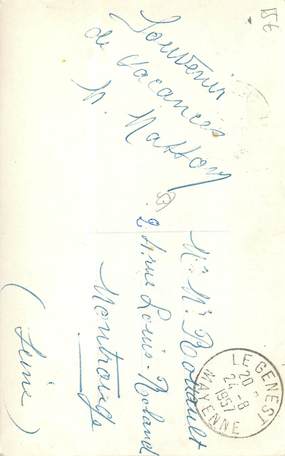 Souvenir
de vacances
N. Matton
Mr Mr Rouault
24 rue Louis-Roland
Montrouge
(Seine)
LE GENEST
20 -
24 -8
1957
MAYENNE
15€